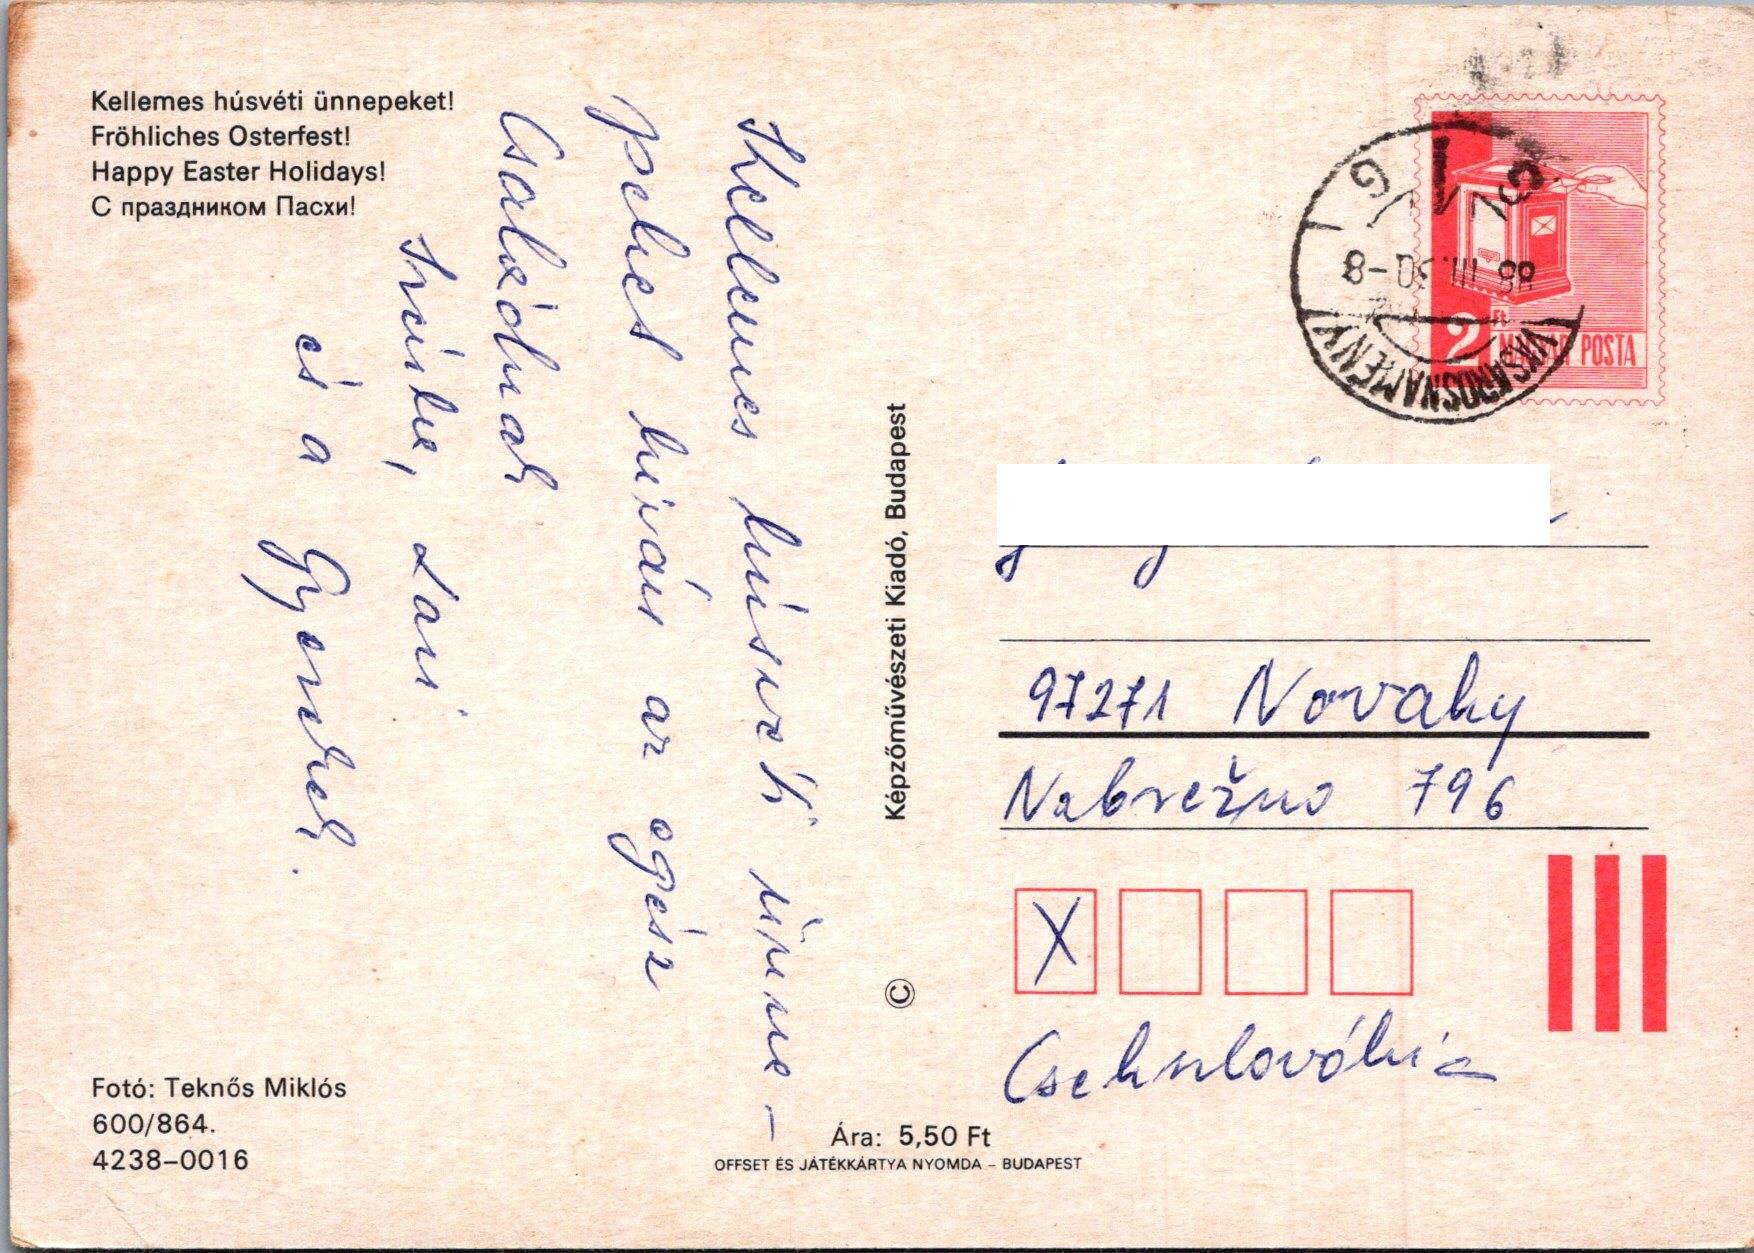 Kellemes húsvéti ünnepeket!
Fröhliches Osterfest!
Happy Easter Holidays!
С праздником Пасхи!
Kellemes húsvéti ünne-
peket kíván az egész
Családnak
Lani
és a Gyerekek.
Fotó: Teknős Miklós
600/864.
4238–0016
Képzőművészeti Kiadó, Budapest
©
Ára: 5,50 Ft
OFFSET ÉS JÁTÉKKÁRTYA NYOMDA – BUDAPEST
2 Ft
MAGYAR POSTA
88. III. 30 -8
VÁSÁROSNAMÉNY
1
97271 Novaky
Nabrežno 796
X
Csehslovákia